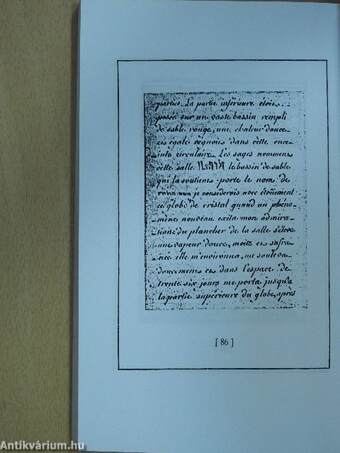 parties. La partie inférieure étoit
posée sur un vaste bassin rempli
de sable rouge, une chaleur douce
et égale regnoit dans cette enc-
einte circulaire. Les sages nomment
cette salle le bassin de sable
qui la soutient porte le nom de
je considerois avec étonnement
ce globe de cristal quand un phéno-
mène nouveau exita mon admira-
tion du plancher de la salle s'éleva
une vapeur douce, moite et safra-
née elle m'environna, me souleva
doucement et dans l'espace de
trente six jours me porta jusqu'a
la partie supérieure du globe, après
[ 86 ]
Antikvárium.hu